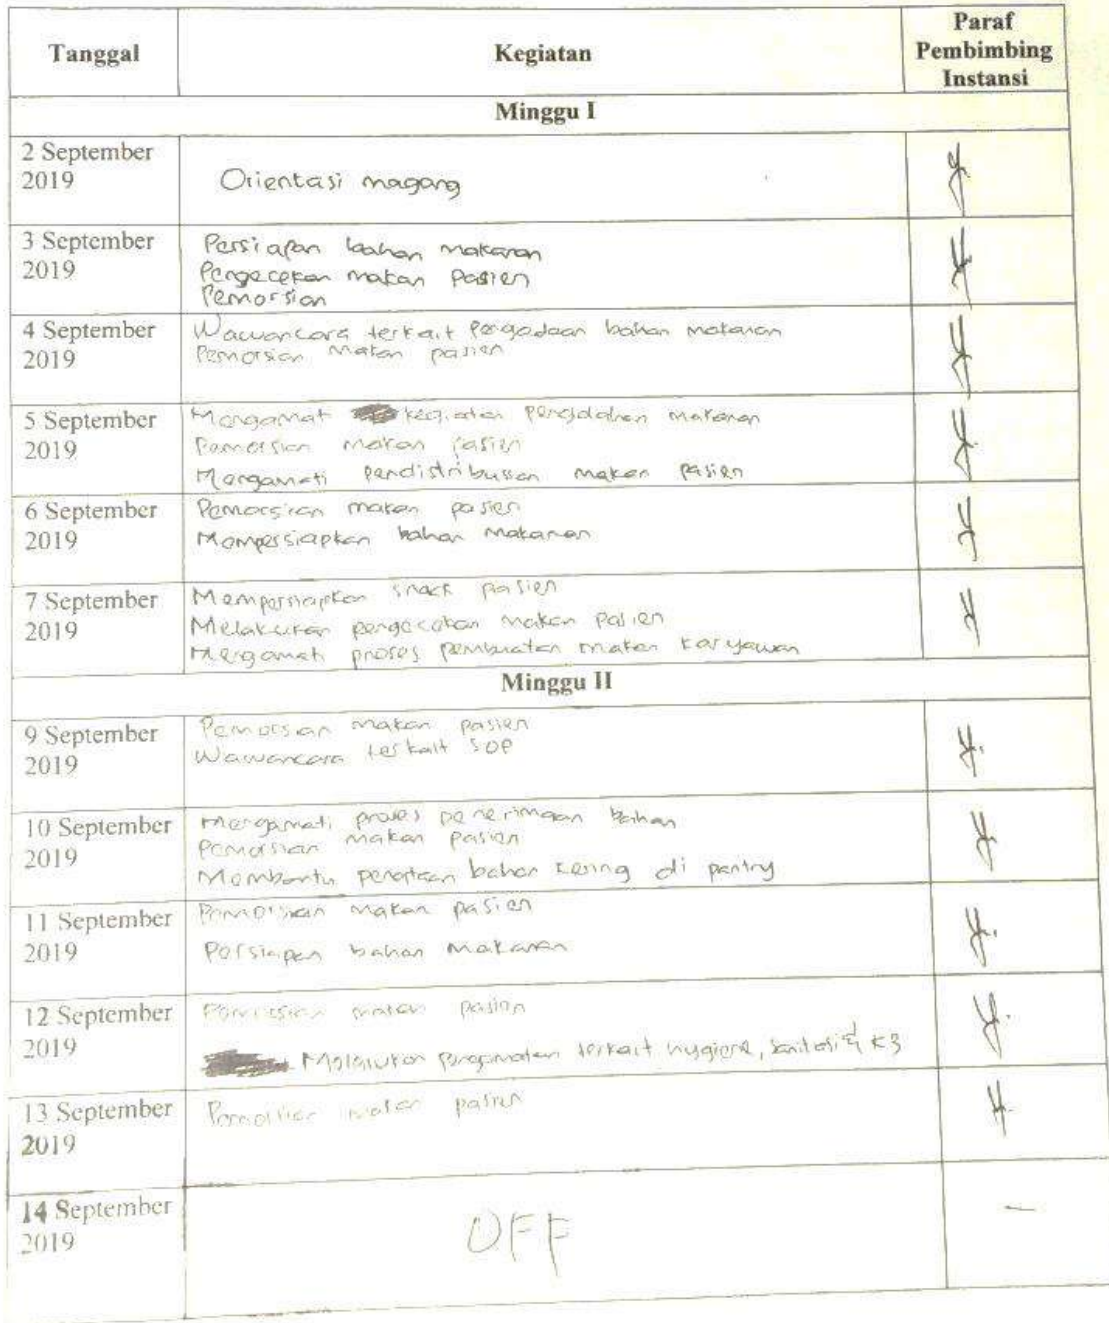 Tanggal
Kegiatan
Paraf
Pembimbing
Instansi
Minggu I
2 September
2019
Orientasi magang
3 September
2019
Persiapan bahan makanan
Pengecekan makan pasien
Pemorsian
4 September
2019
Wawancara terkait Pengadaan bahan makanan
Pemorsian makan pasien
5 September
2019
Mengamat kegiatan pengolahan makanan
Pemorsian makan pasien
Mengamati pendistribusian makan pasien
6 September
2019
Pemorsian makan pasien
Mempersiapkan bahan makanan
7 September
2019
Mempersiapkan snack pasien
Melakukan pengecekan makan pasien
Mengamati proses pembuatan makan karyawan
Minggu II
9 September
2019
Pemorsian makan pasien
Wawancara terkait SOP
10 September
2019
Mengamati proses penerimaan bahan
Pemorsian makan pasien
Membantu penataan bahan kering di pantry
11 September
2019
Pemorsian makan pasien
Persiapan bahan makanan
12 September
2019
Pemorsian makan pasien
Melakukan pengamatan terkait hygiene, sanitasi & K3
13 September
2019
Pemorsian makan pasien
14 September
2019
OFF
-